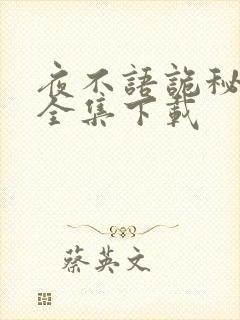 夜不語詭秘
全集下載
蔡英文